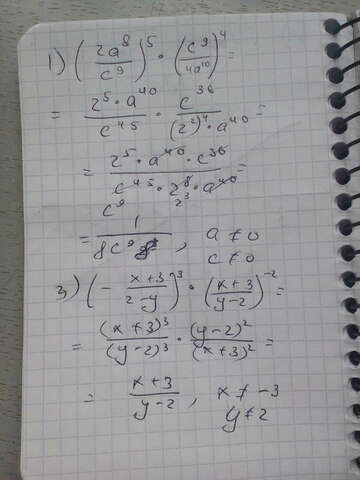 1) (2a⁸/c⁹)⁵ · (c⁹/4a¹⁰)⁴ =
= 2⁵·a⁴⁰/c⁴⁵ · c³⁶/(2²)⁴·a⁴⁰ =
= 2⁵·a⁴⁰·c³⁶/c⁴⁵·2⁸·a⁴⁰ =
c⁹ 2³
= 1/8c⁹, a ≠ 0
c ≠ 0
3) (- x+3/2-y)³ · (x+3/y-2)⁻² =
= (x+3)³/(y-2)³ · (y-2)²/(x+3)² =
= x+3/y-2, x ≠ -3
y ≠ 2